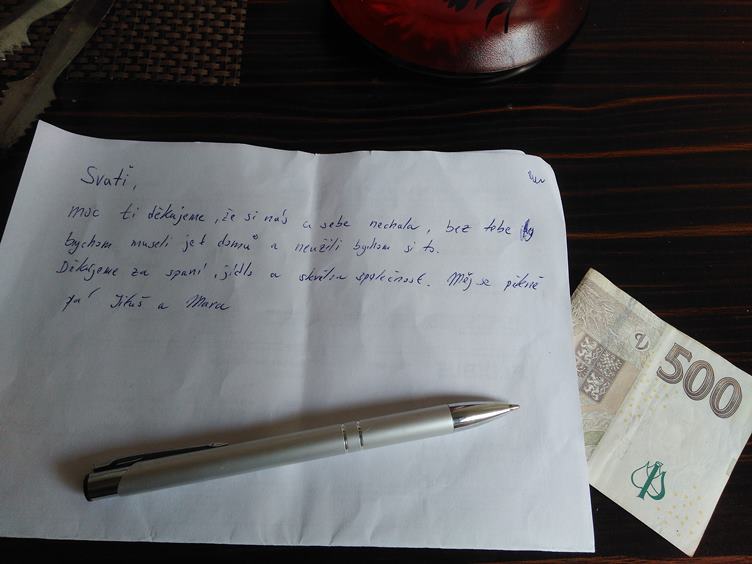 Svati,
moc ti děkujeme, že si nás u sebe nechala, bez tebe
bychom museli jet domů a neužili bychom si to.
Děkujeme za spaní, jídlo a skvělou společnost. Měj se pěkně
pá Jituš a Mara
500